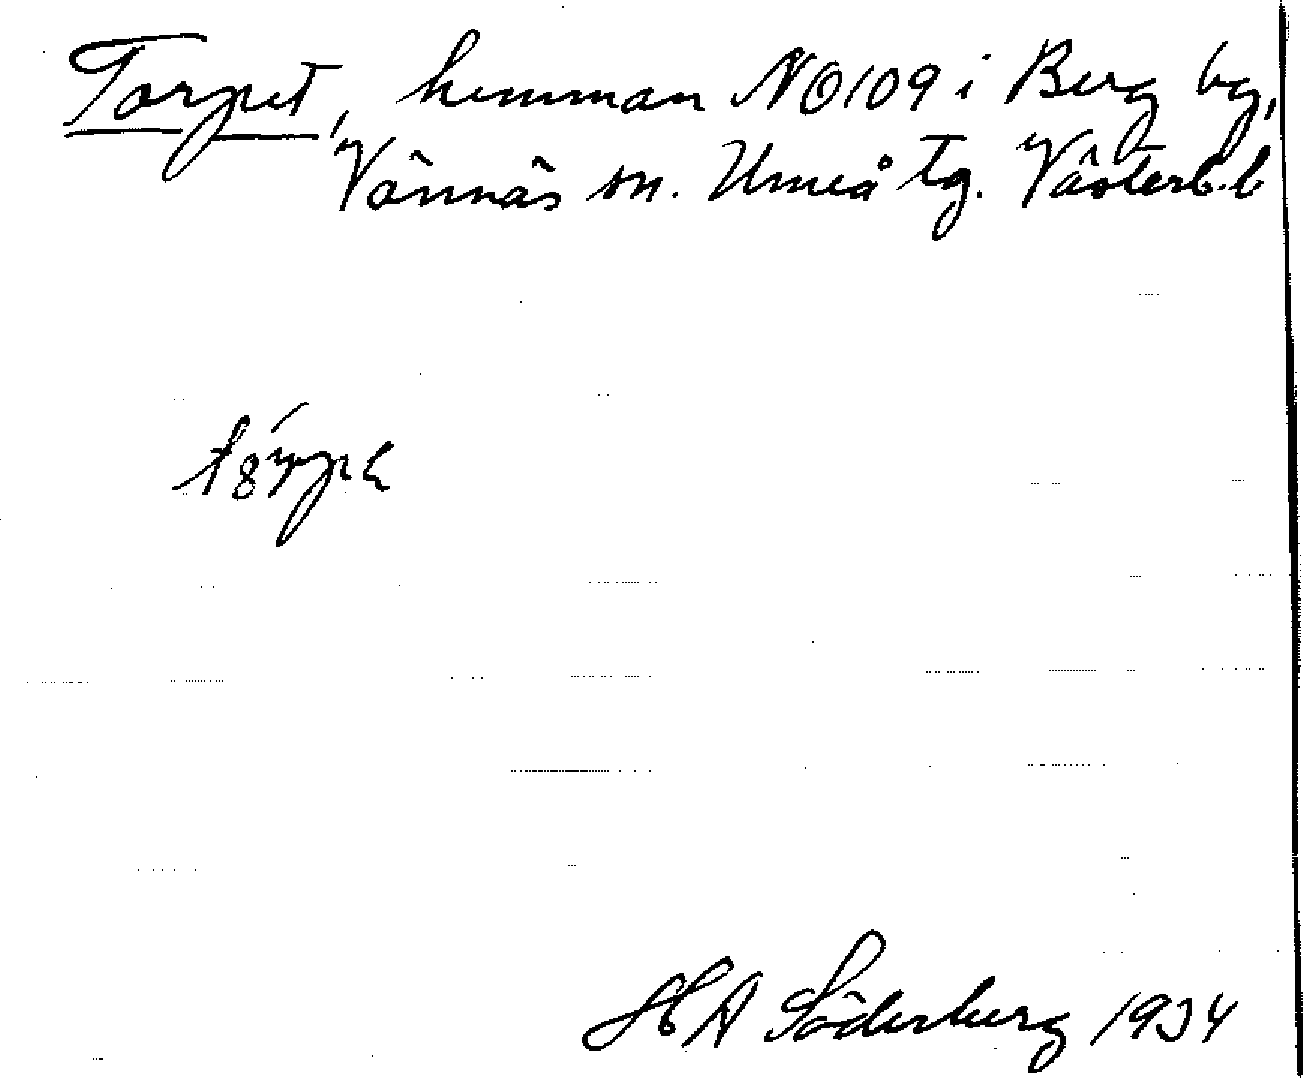 Torpet, hemman No 109 i Berg by,
Vännäs sn. Umeå tg. Västerb. l
H A Söderberg 1934